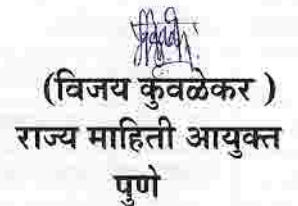 (विजय कुंवळेकर )
राज्य माहिती आयुक्त
पुणे